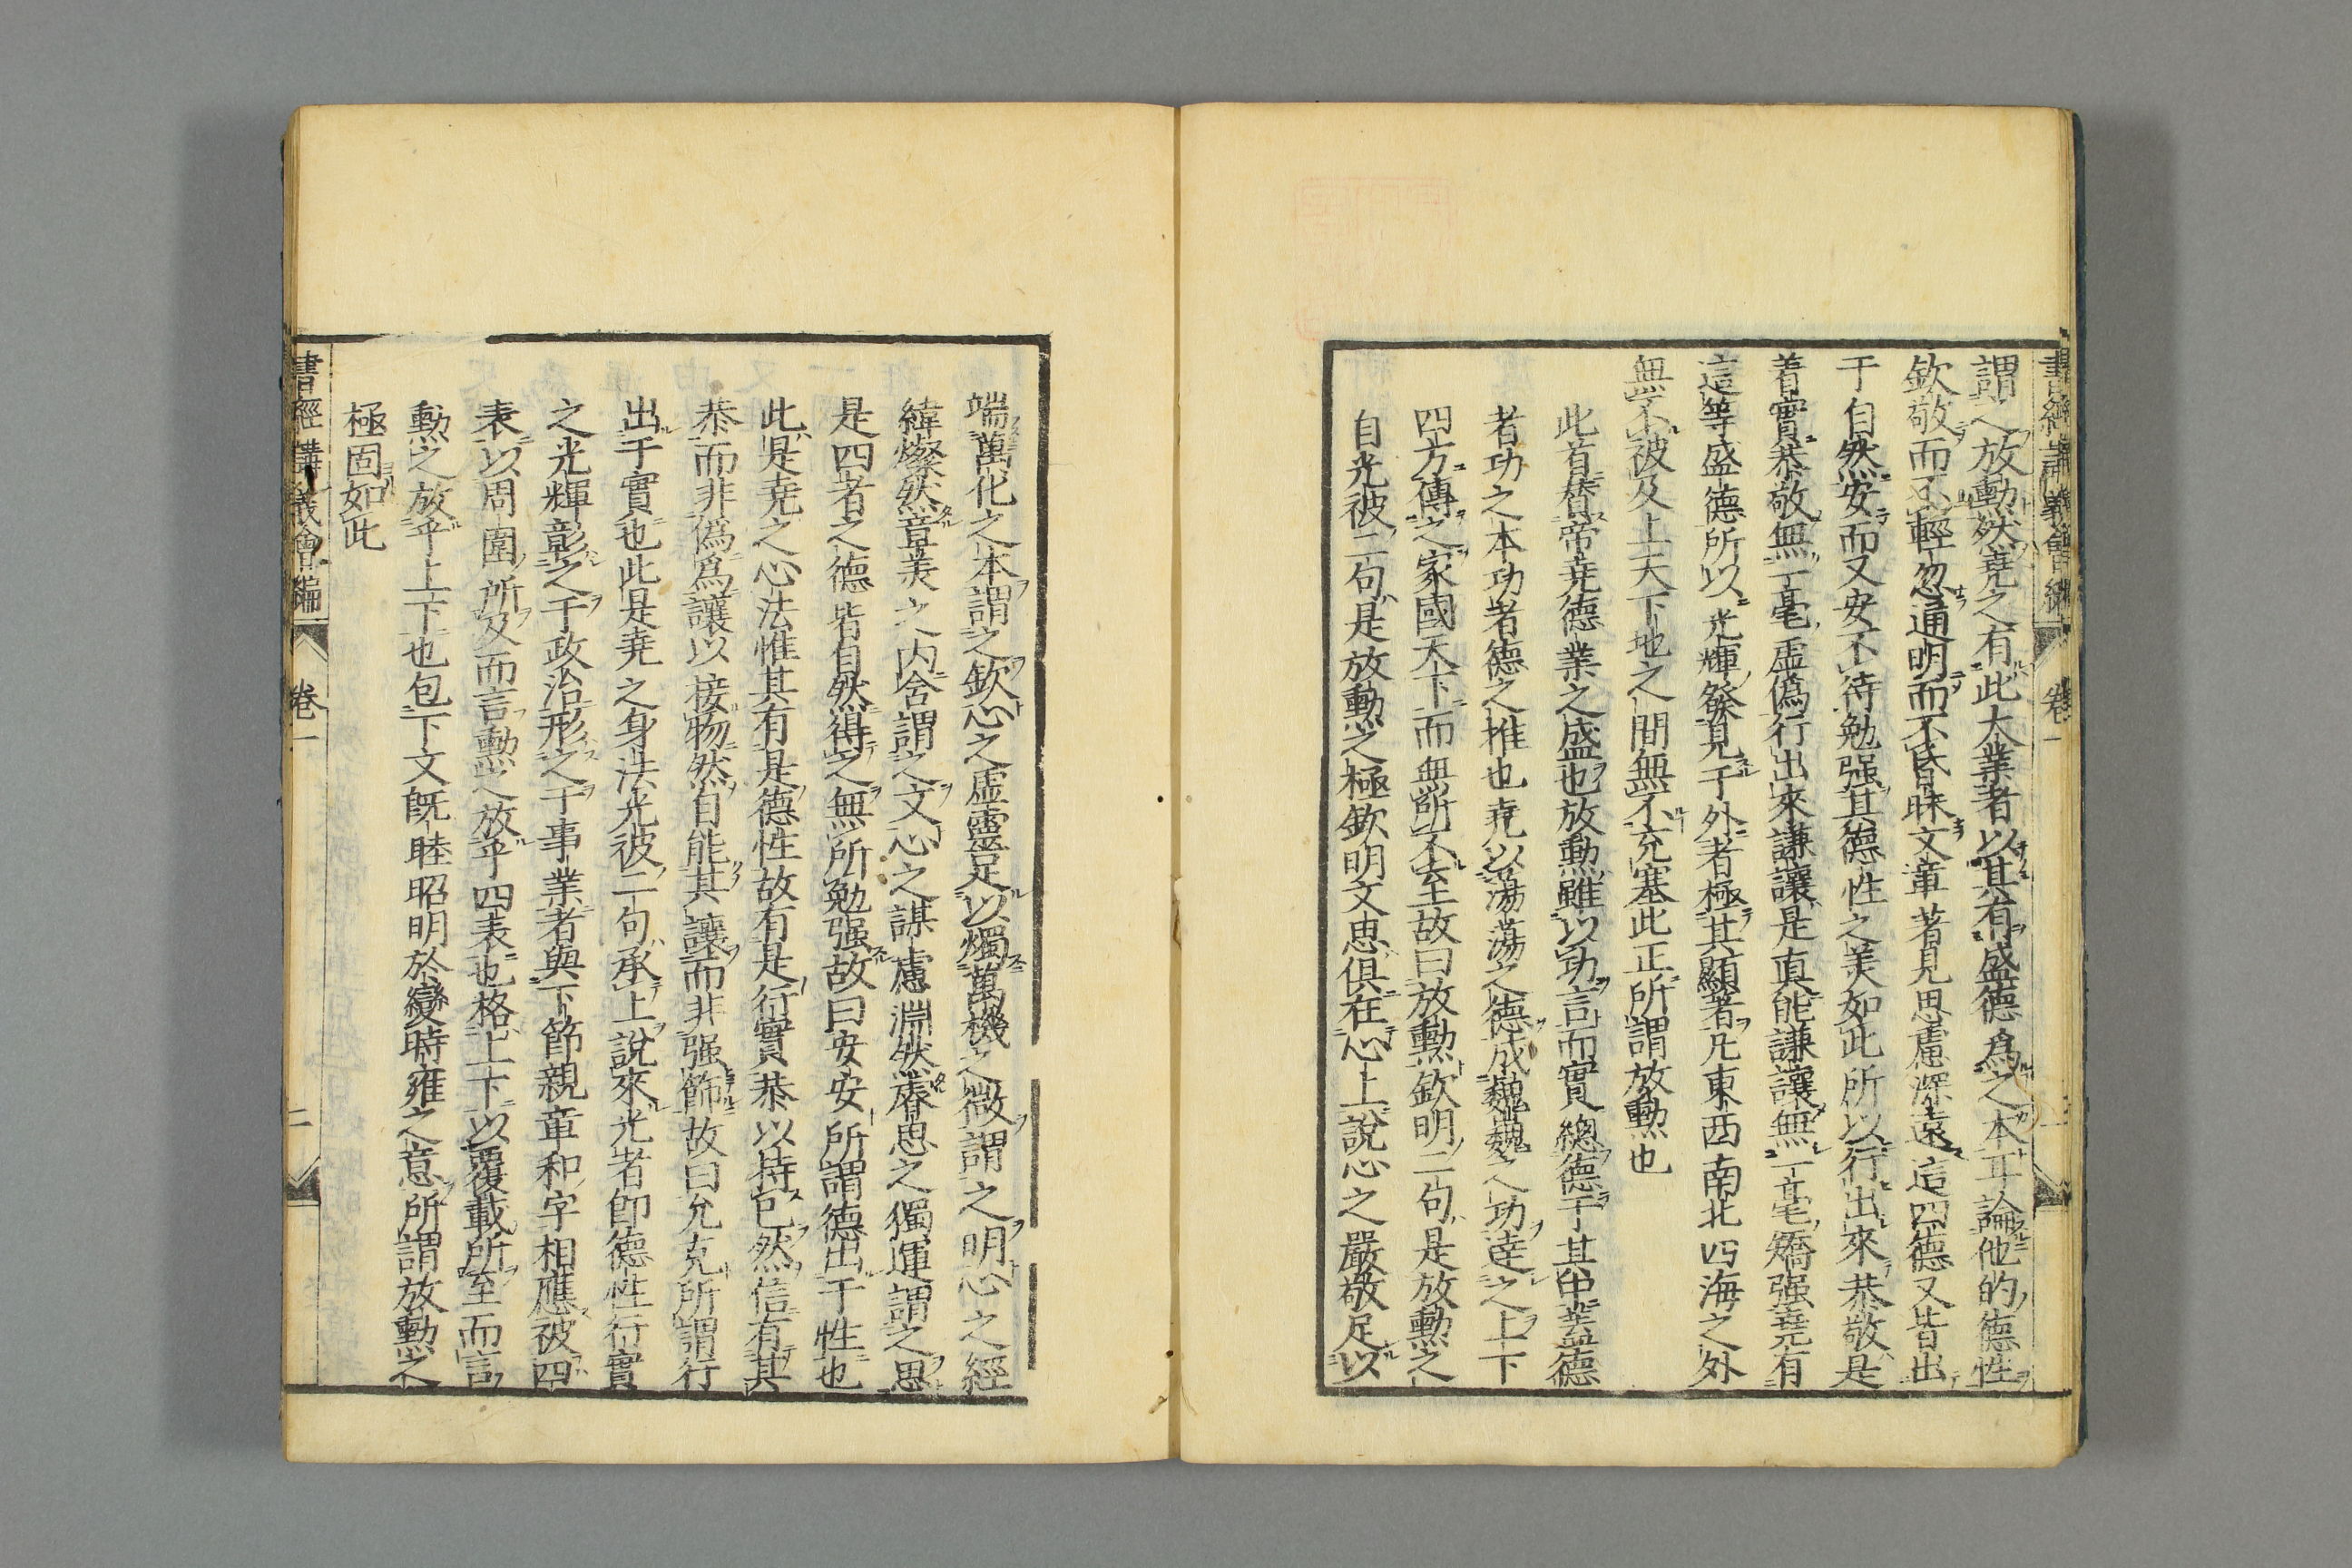 書經講義會編 卷一
謂之放勳然堯之有此大業者以其有盛德爲之本耳論他的德性
欽敬而不輕忽通明而不昏昧文章著見思慮深遠這四德又皆出
于自然安而又安不待勉强其德性之美如此所以行出來恭敬是
着實恭敬無一毫虛僞行出來謙讓是眞能謙讓無一毫矯强堯有
這等盛德所以光輝發見于外者極其顯著凡東西南北四海之外
無不被及上天下地之間無不充塞此正所謂放勳也
此首替帝堯德業之盛也放勳雖以功言而實總德于其中葢德
者功之本功者德之推也堯以蕩蕩之德成巍巍之功達之上下
四方傳之家國天下而無所不去至故曰放勳欽明二句是放勳之
自光彼二句是放勳之極欽明文思俱在心上說心之嚴敬足以
端萬化之本謂之欽心之虛靈足以燭萬機之微謂之明心之經
緯燦然音美之内含謂之文心之謀慮淵然睿思之獨運謂之思
是四者之德皆自然得之無所勉强故曰安安所謂德出于性也
此是堯之心法惟其有是德性故有是行實恭以持己然信有其
恭而非僞爲讓以接物然自能其讓而非强飾故曰允克所謂行
出于實也此是堯之身法光彼二句承上說來光者卽德性行實
之光輝彰之于政治形之于事業者與下節親章和字相應被四
表以周圍所及而言勳之放乎四表也格上下以覆載所至而言
勳之放乎上下也包下文旣睦昭明於變時雍之意所謂放勳之
極固如此
書經講義會編 卷一 二